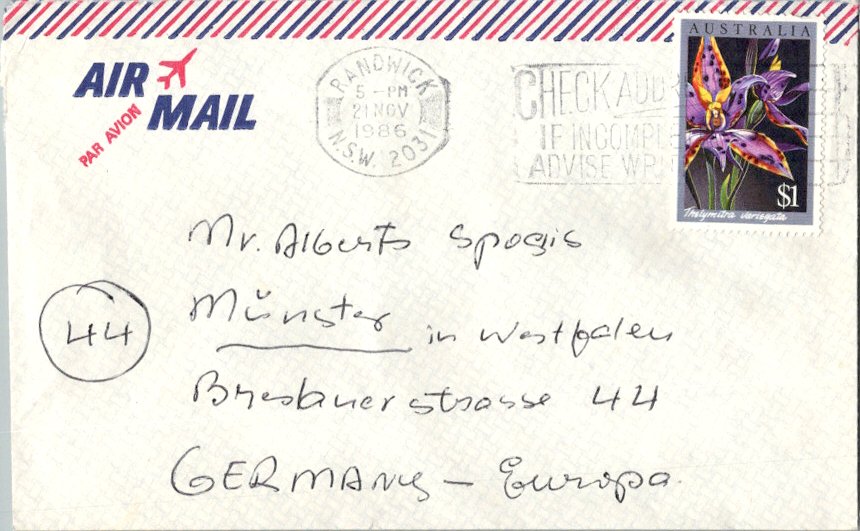 AUSTRALIA
AIR
MAIL
PAR AVION
RANDWICK
5 - PM
21 NOV
1986
N.S.W. 2031
CHECK ADDR
IF INCOMPLE
ADVISE WR
$1
Thelymitra variegata
Mr. Alberts Spogis
44
Münster in Westfalen
Breslauerstrasse 44
GERMANY - Europa